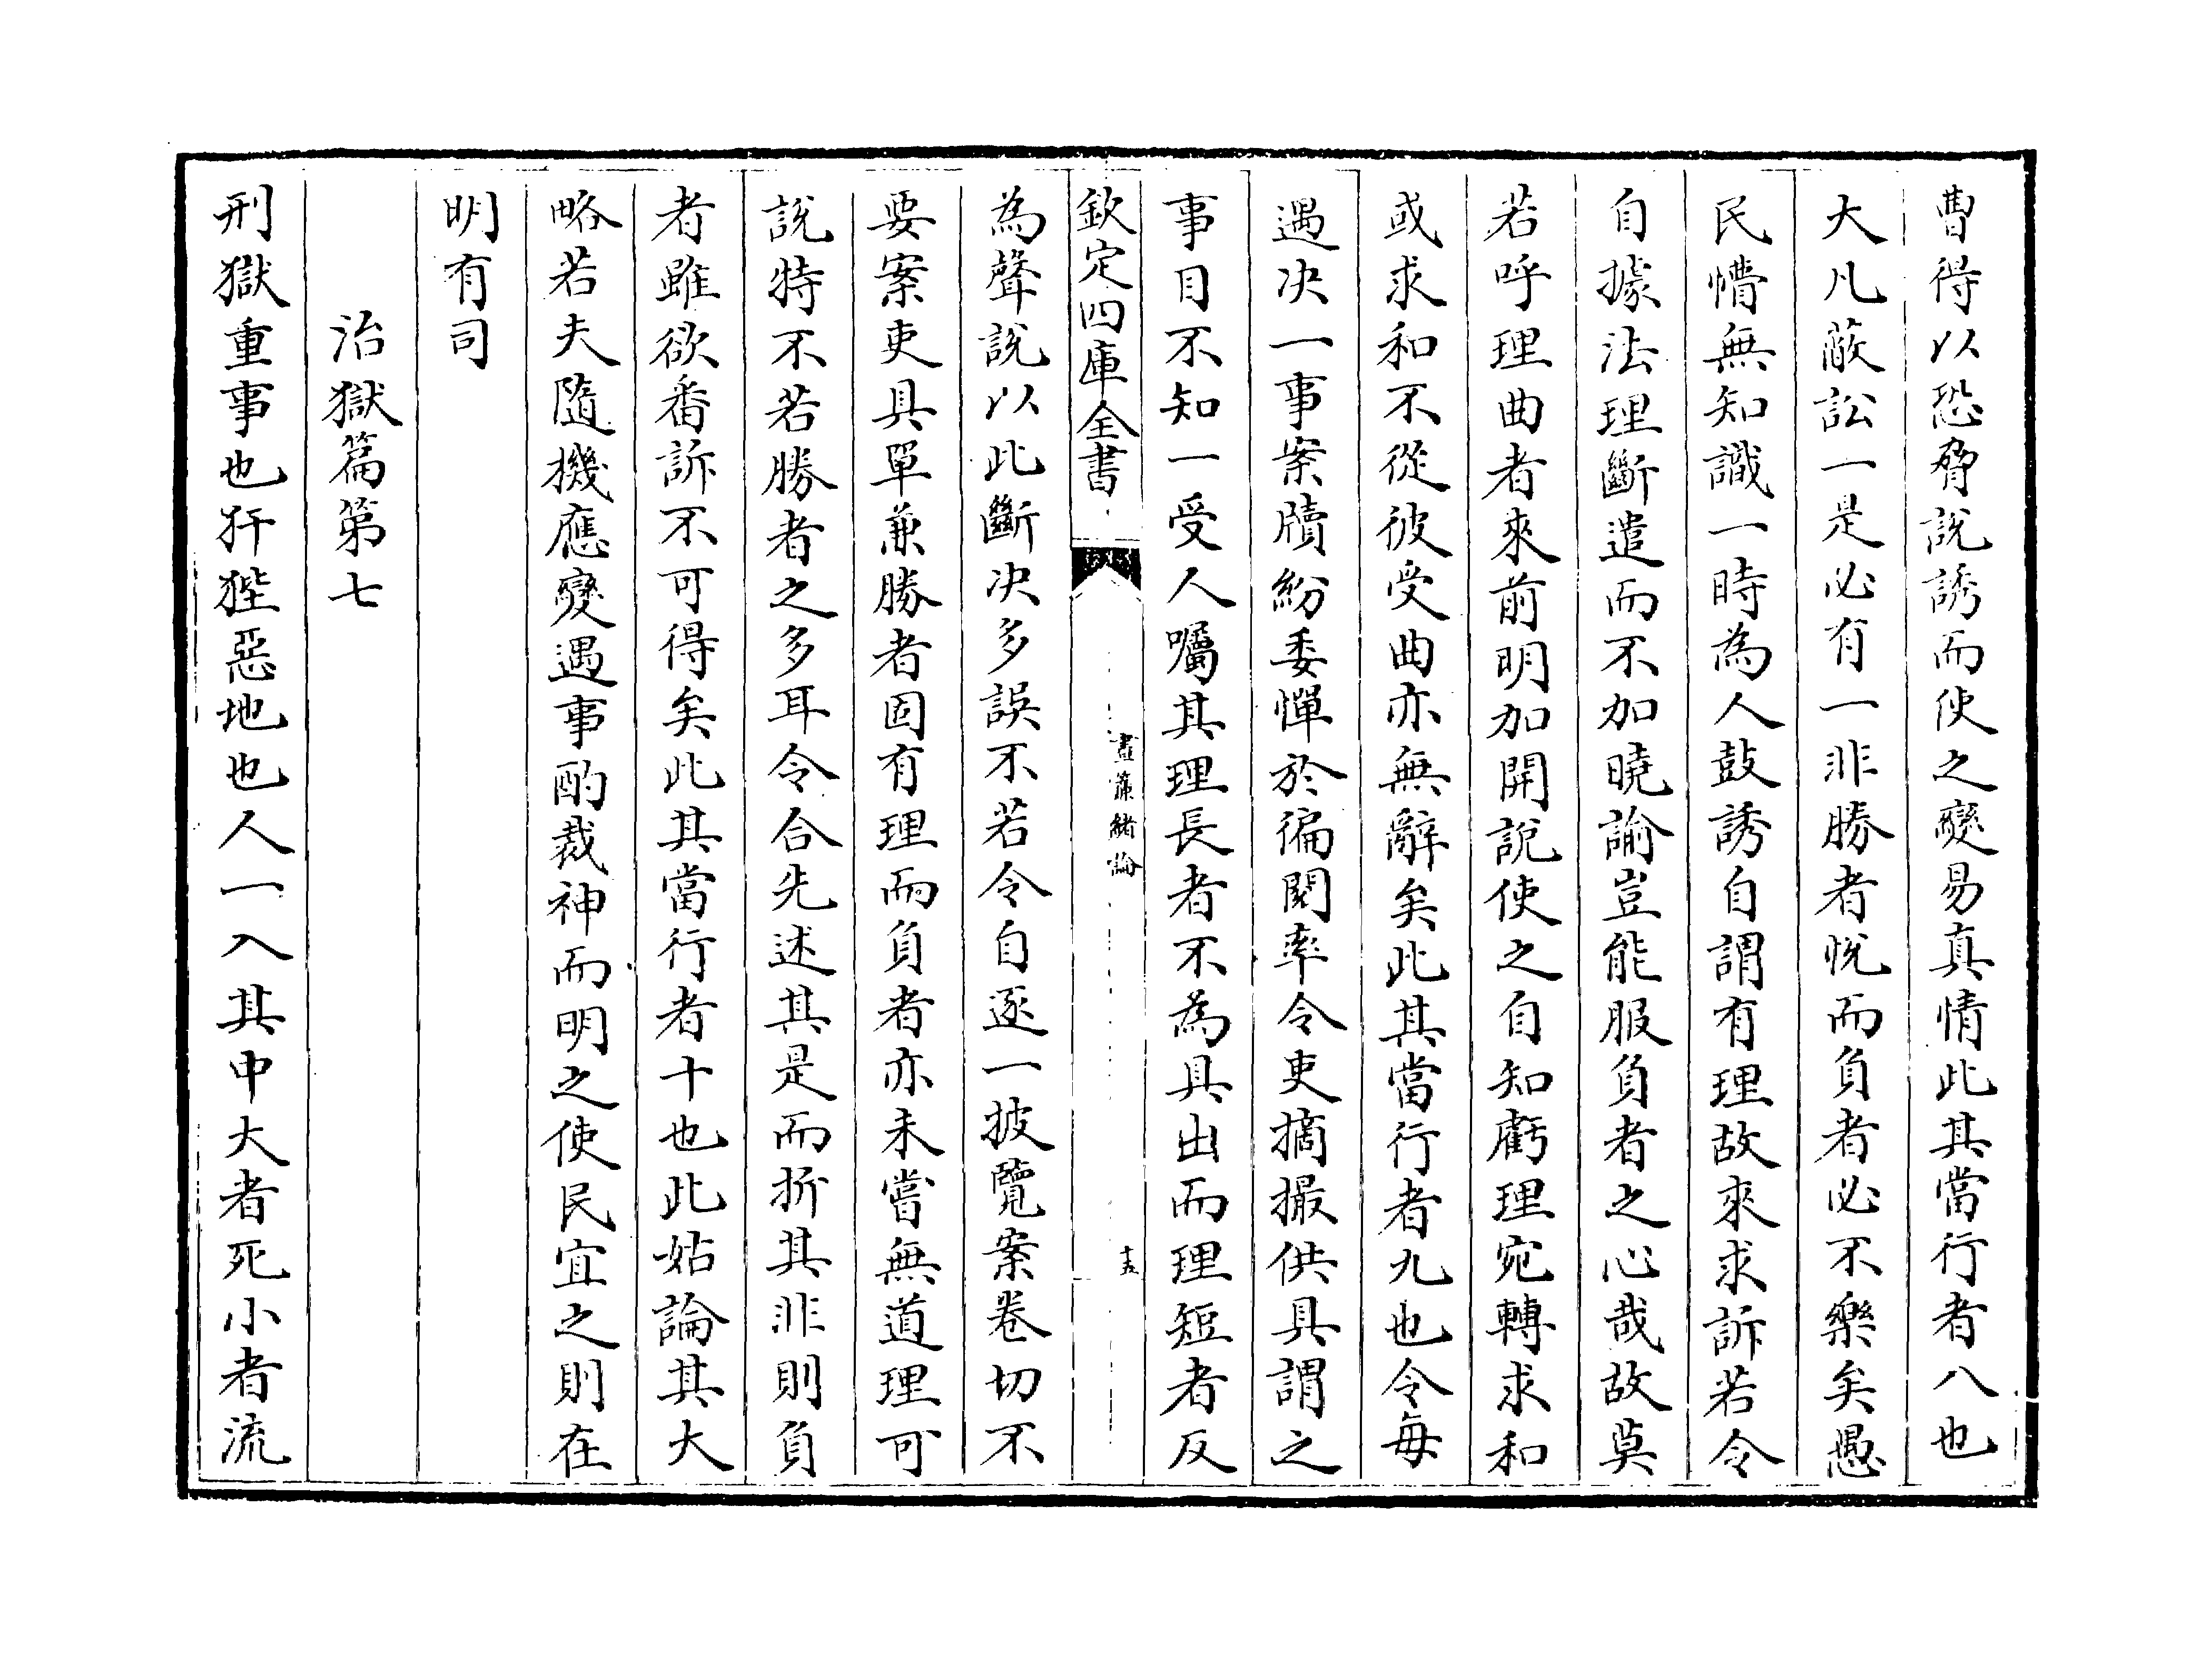 曹得以恐脅說誘而使之變易真情此其當行者八也
大凡蔽訟一是必有一非勝者恱而負者必不樂矣愚
民懵無知識一時為人鼓誘自謂有理故來求訴若令
自據法理斷遣而不加曉諭豈能服負者之心哉故莫
若呼理曲者來前明加開說使之自知虧理宛轉求和
或求和不從彼受曲亦無辭矣此其當行者九也令每
遇决一事案牘紛委憚於徧閱率令吏摘撮供具謂之
事目不知一受人囑其理長者不為具出而理短者反
欽定四庫全書
晝簾緒論
十五
為聲說以此斷决多誤不若令自逐一披覽案卷切不
要案吏具單兼勝者固有理而負者亦未嘗無道理可
說特不若勝者之多耳令合先述其是而折其非則負
者雖欲番訴不可得矣此其當行者十也此姑論其大
略若夫隨機應變遇事酌裁神而明之使民宜之則在
明有司
治獄篇第七
刑獄重事也犴狴惡地也人一入其中大者死小者流